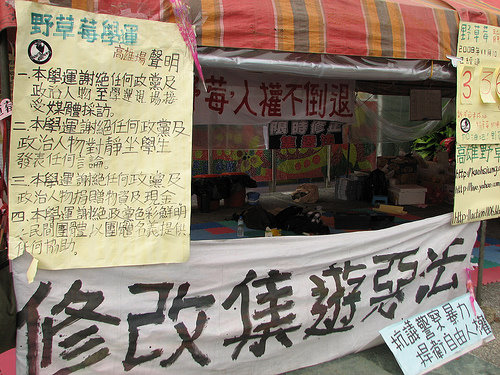 野草莓學運
高雄場 聲明
一.本學運謝絕任何政黨及
政治人物至學運現場接
受媒體採訪。
二.本學運謝絕任何政黨及
政治人物對靜坐學生
發表任何言論。
三.本學運謝絕任何政黨及
政治人物捐贈物資及現金。
四.本學運謝絕政黨色彩鮮明
之民間團體以團體名義提供
任何協助。
莓,人權不倒退
野草莓
高雄野草
修改集遊惡法
抗議警察暴力
捍衛自由人權